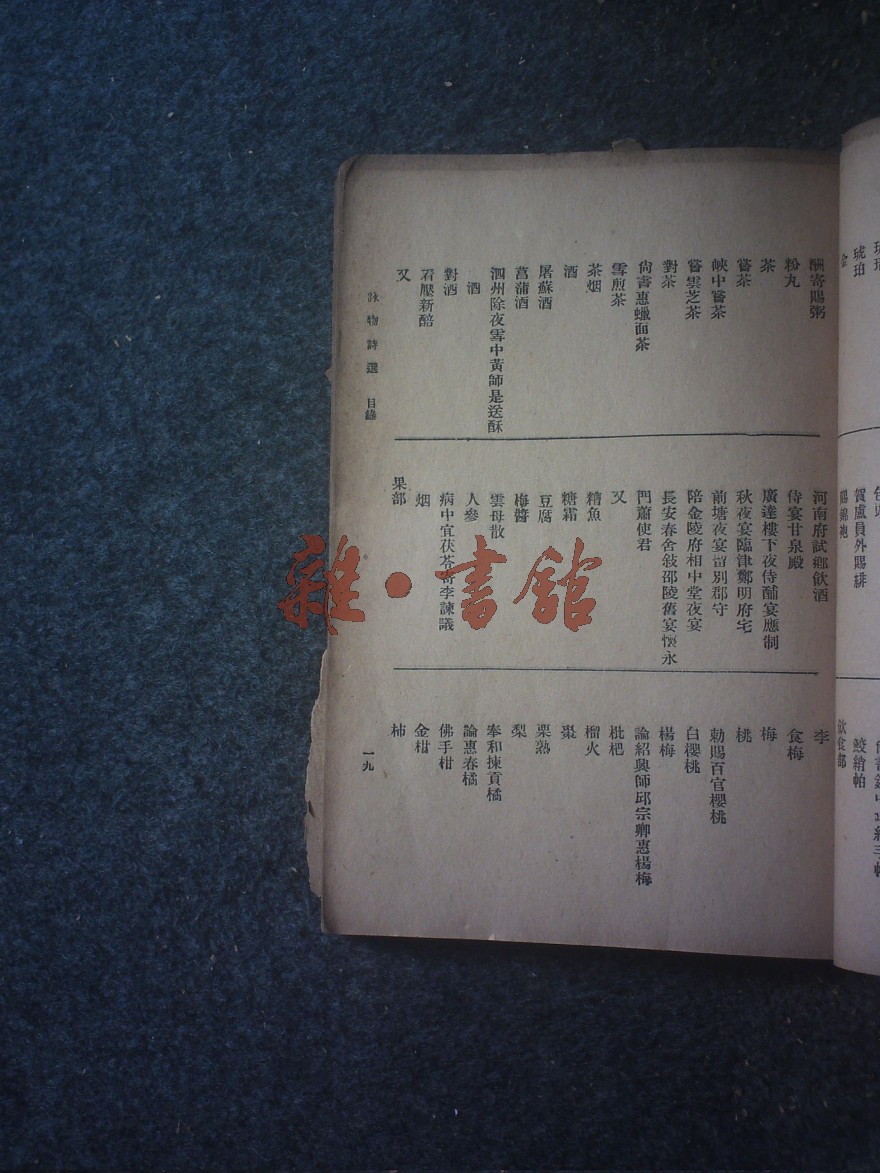 琥珀
賀盧員外賜緋
賜錦袍
鮫綃帕
飲食部
酬寄賜粥
粉丸
茶
嘗茶
峽中嘗茶
嘗雲芝茶
對茶
尙書惠蠟面茶
雪煎茶
茶烟
酒
屠蘇酒
菖蒲酒
泗州除夜雪中黃師是送酥
酒
對酒
看壓新醅
又
河南府試鄉飲酒
侍宴甘泉殿
廣達樓下夜侍酺宴應制
秋夜宴臨津鄭明府宅
前塘夜宴留別郡守
陪金陵府相中堂夜宴
長安春舍敍邵陵舊宴懷永
門蕭使君
又
糟魚
糖霜
豆腐
梅醬
雲母散
人參
病中宜茯苓寄李諫議
烟
果部
李
食梅
梅
桃
勅賜百官櫻桃
白櫻桃
楊梅
論紹興師邱宗卿惠楊梅
枇杷
榴火
棗
栗熟
梨
奉和揀貢橘
論惠春橘
佛手柑
金柑
柿
詠物詩選 目錄
一九
雜·書館